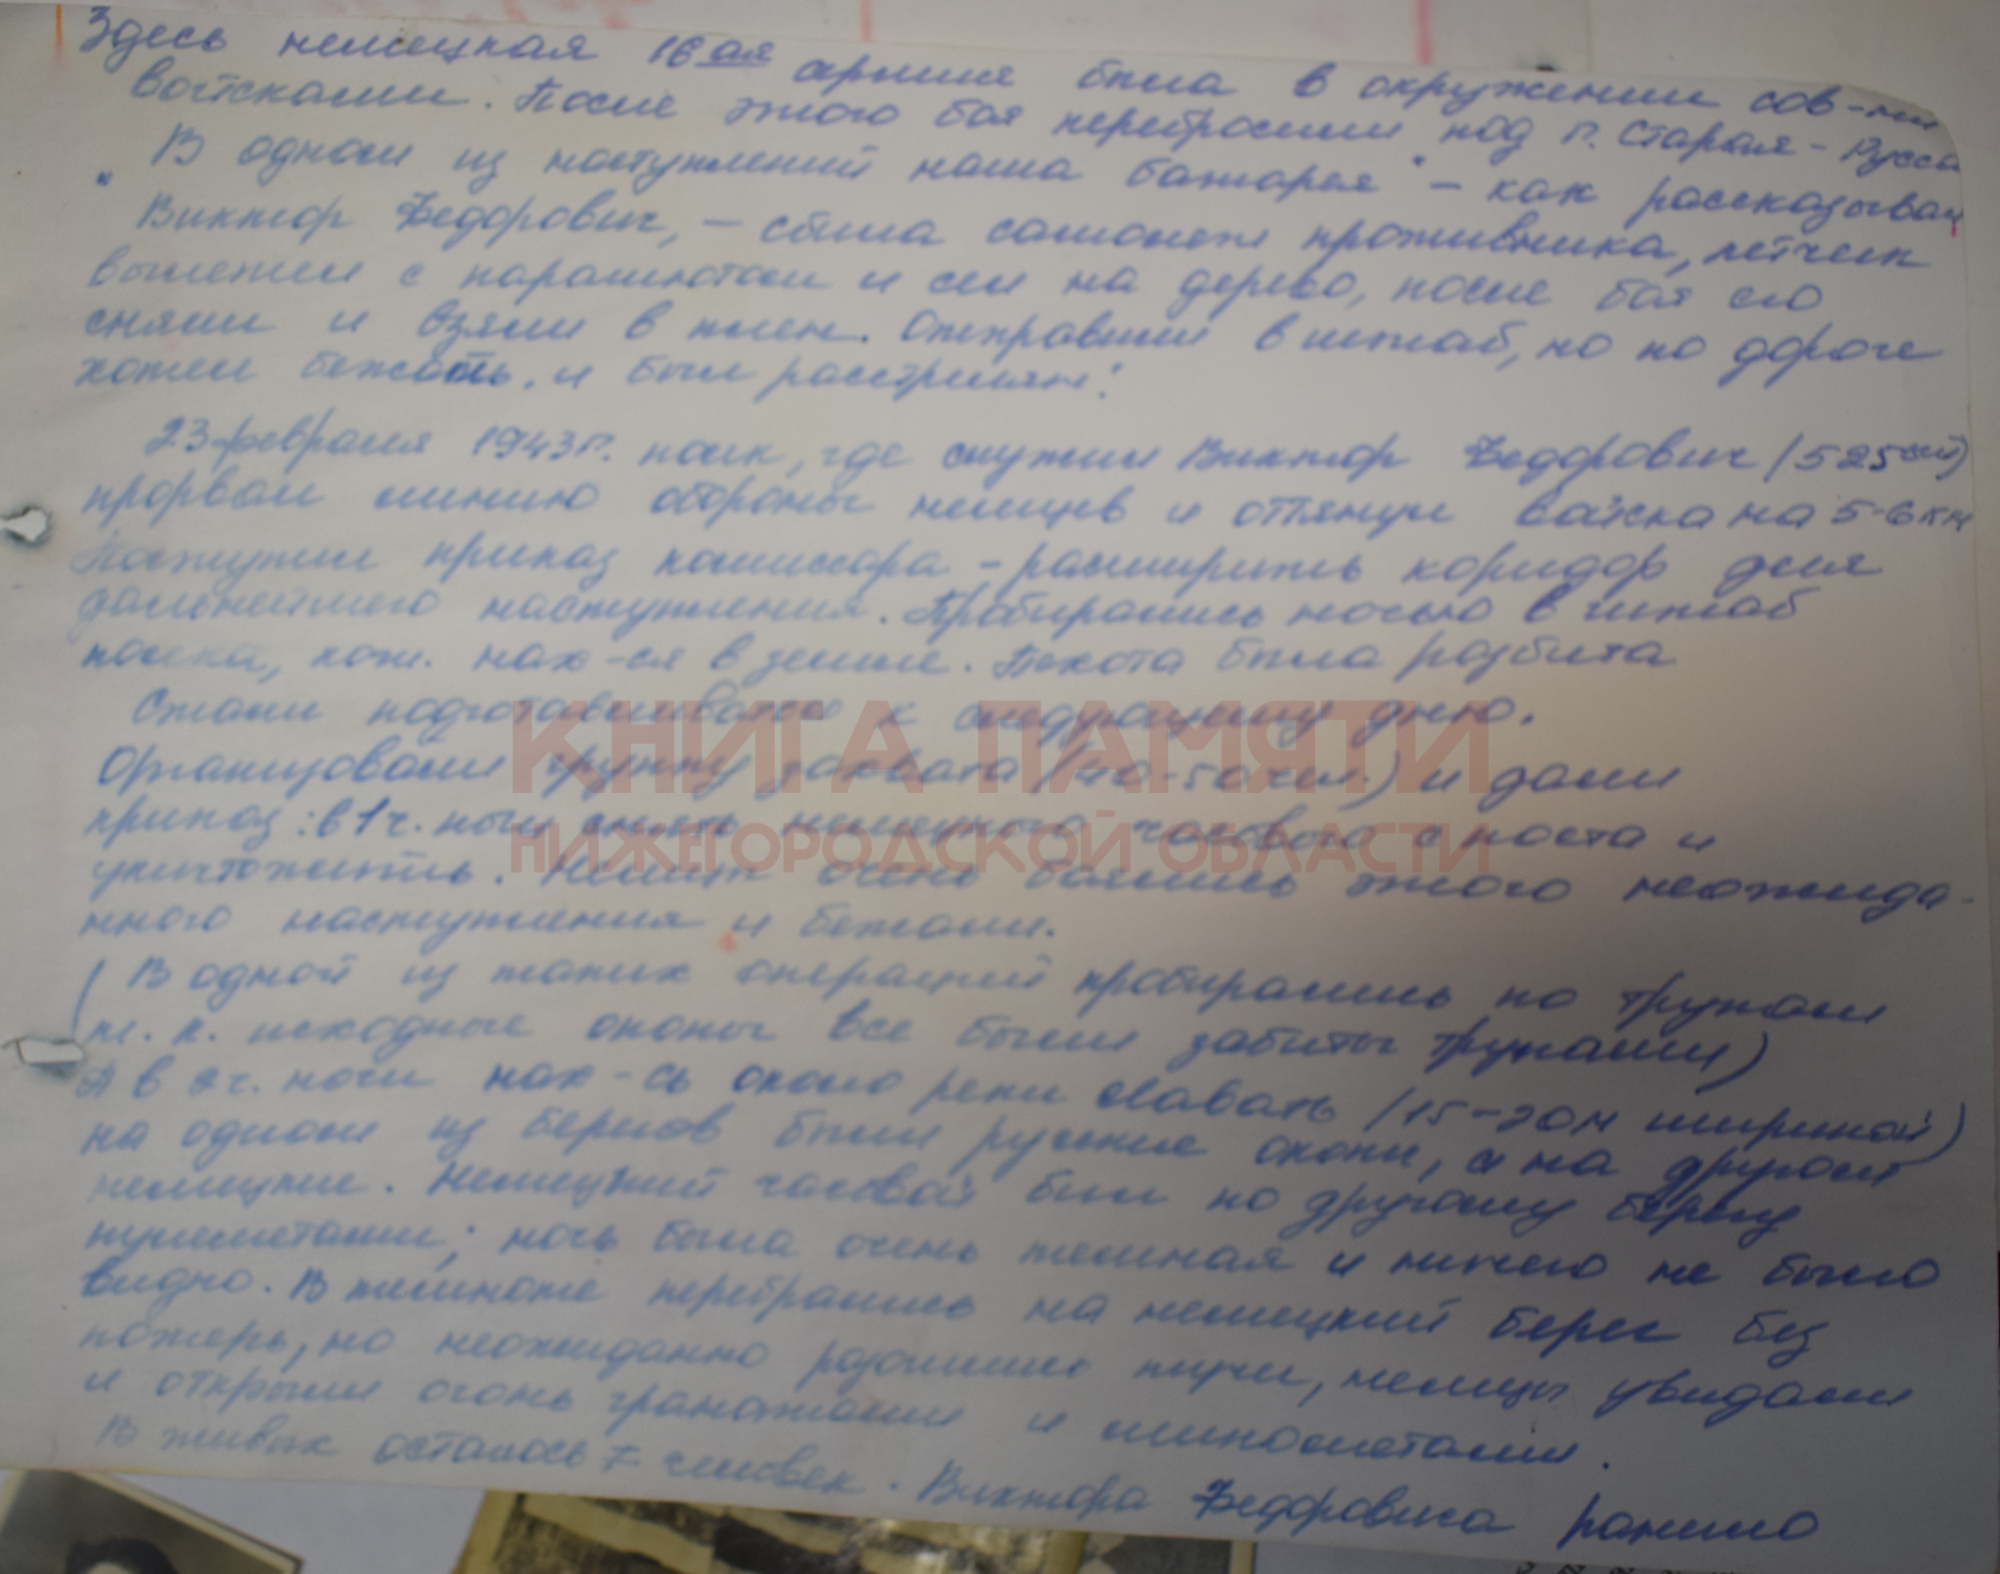 Здесь немецкая 16ая армия была в окружении сов-ми
войсками. После этого боя перебросили под г. Старая-Русса
"В одном из наступлений наша батарея" - как рассказывал
Виктор Федорович, - сбила самолет противника, летчик
вылетел с парашютом и сел на дерево, после боя его
сняли и взяли в плен. Отправили в штаб, но по дороге
хотел бежать, и был расстрелян.
23 февраля 1943г. полк, где служил Виктор Федорович (525ый)
прорвал линию обороны немцев и оттянул войска на 5-6 км
Поступил приказ комиссара - расширить коридор для
дальнейшего наступления. Пробирались ночью в штаб
полка, кот. нах-ся в земле. Пехота была разбита
Стали подготавливаться к следующему дню.
Организовали группу захвата (40-50 чел.) и дали
приказ: в 1 ч. ночи снять немецкого часового с поста и
уничтожить. Немцы очень боялись этого неожида-
нного наступления и бежали.
(В одной из таких операций пробирались по трупам
т. к. исходные окопы все были забиты трупами)
А в 2 ч. ночи нах-сь около реки Ловать (15-20м шириной)
на одном из берегов были русские окопы, а на другом
немецкие. Немецкий часовой бил по другому берегу
пулеметами; ночь была очень темная и ничего не было
видно. В темноте перебрались на немецкий берег без
потерь, но неожиданно разошлись тучи, немцы увидали
и открыли огонь гранатами и минометами.
В живых осталось 7 человек. Виктора Федоровича ранило
КНИГА ПАМЯТИ
НИЖЕГОРОДСКОЙ ОБЛАСТИ